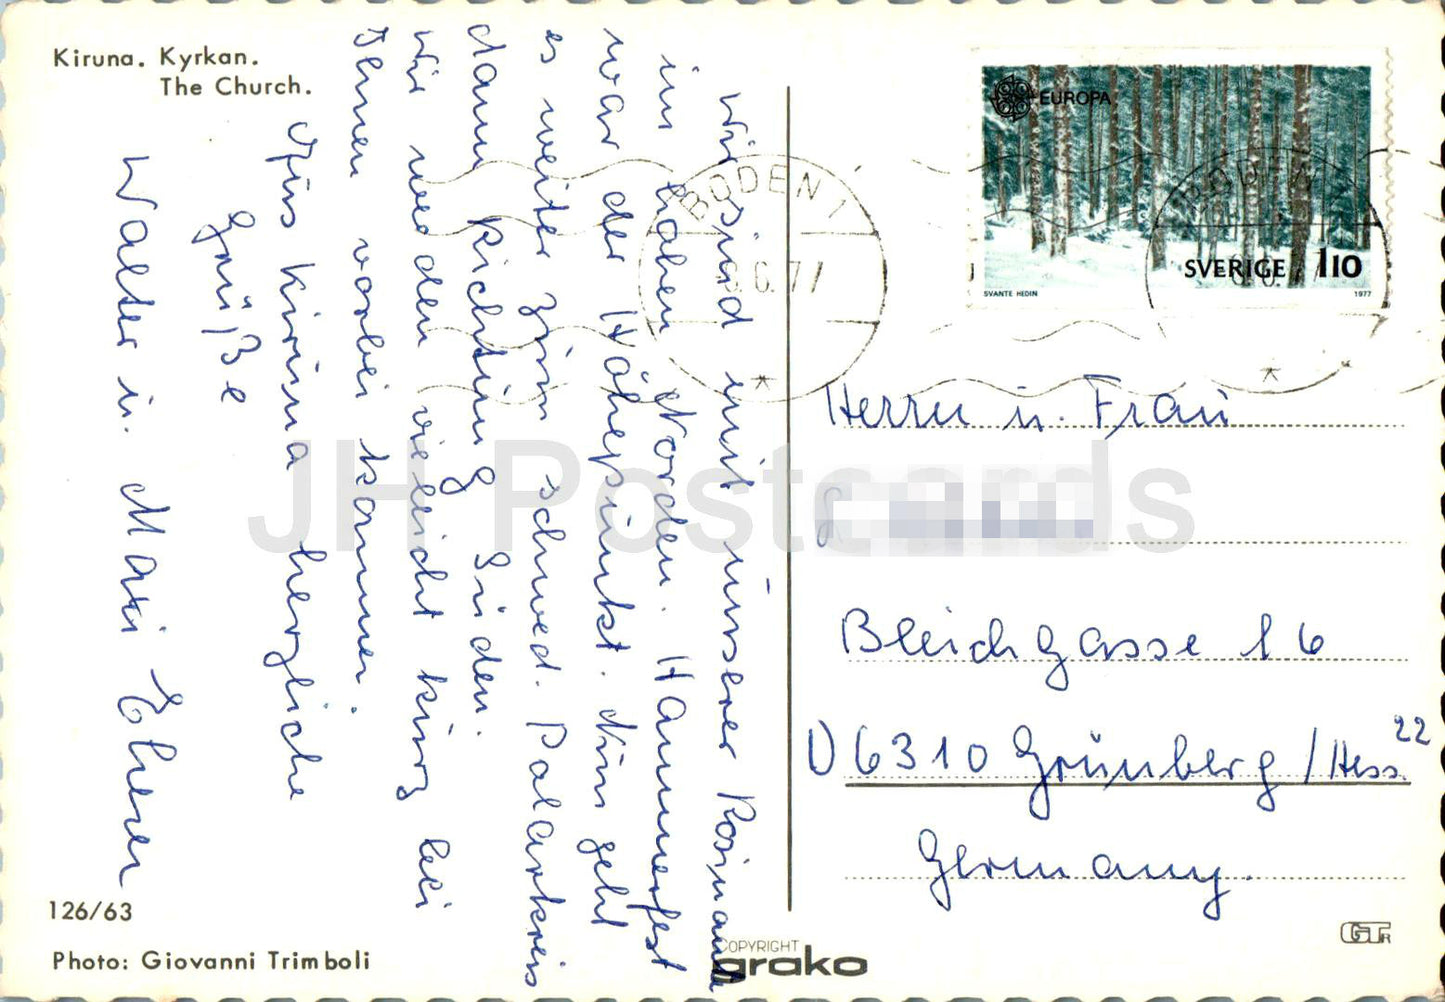 Kiruna. Kyrkan.
The Church.
Wir sind mit unserer Rosinante
im hohen Norden. Hammerfest
war der Höhepunkt. Nun geht
es weiter zum schwed. Polarkreis
dann Richtung Süden.
Wir werden vielleicht kurz bei
Ihnen vorbei kommen.
Aus Kiruna herzliche
Grüße
Walter u.
126/63
Photo: Giovanni Trimboli
COPYRIGHT
grako
EUROPA
SVERIGE 110
SVANTE HEDIN 1977
BODEN 1
6.77
Herrn u. Frau
Bleichgasse 16
D 6310 Grünberg/Hess. 22
Germany.
JH Postcards